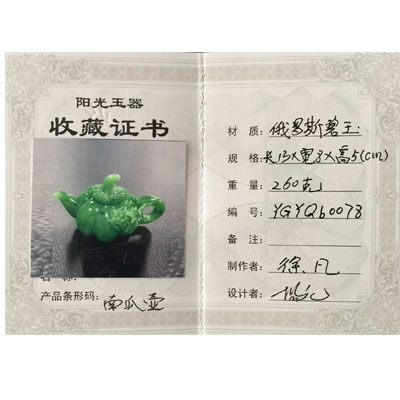 阳光玉器
收藏证书
产品条形码: 南瓜壶
材 质: 俄罗斯碧玉
规 格: 长13X宽8X高5(cm)
重 量: 260克
编 号: YGYQb0078
备 注:
制作者: 徐凡
设计者: